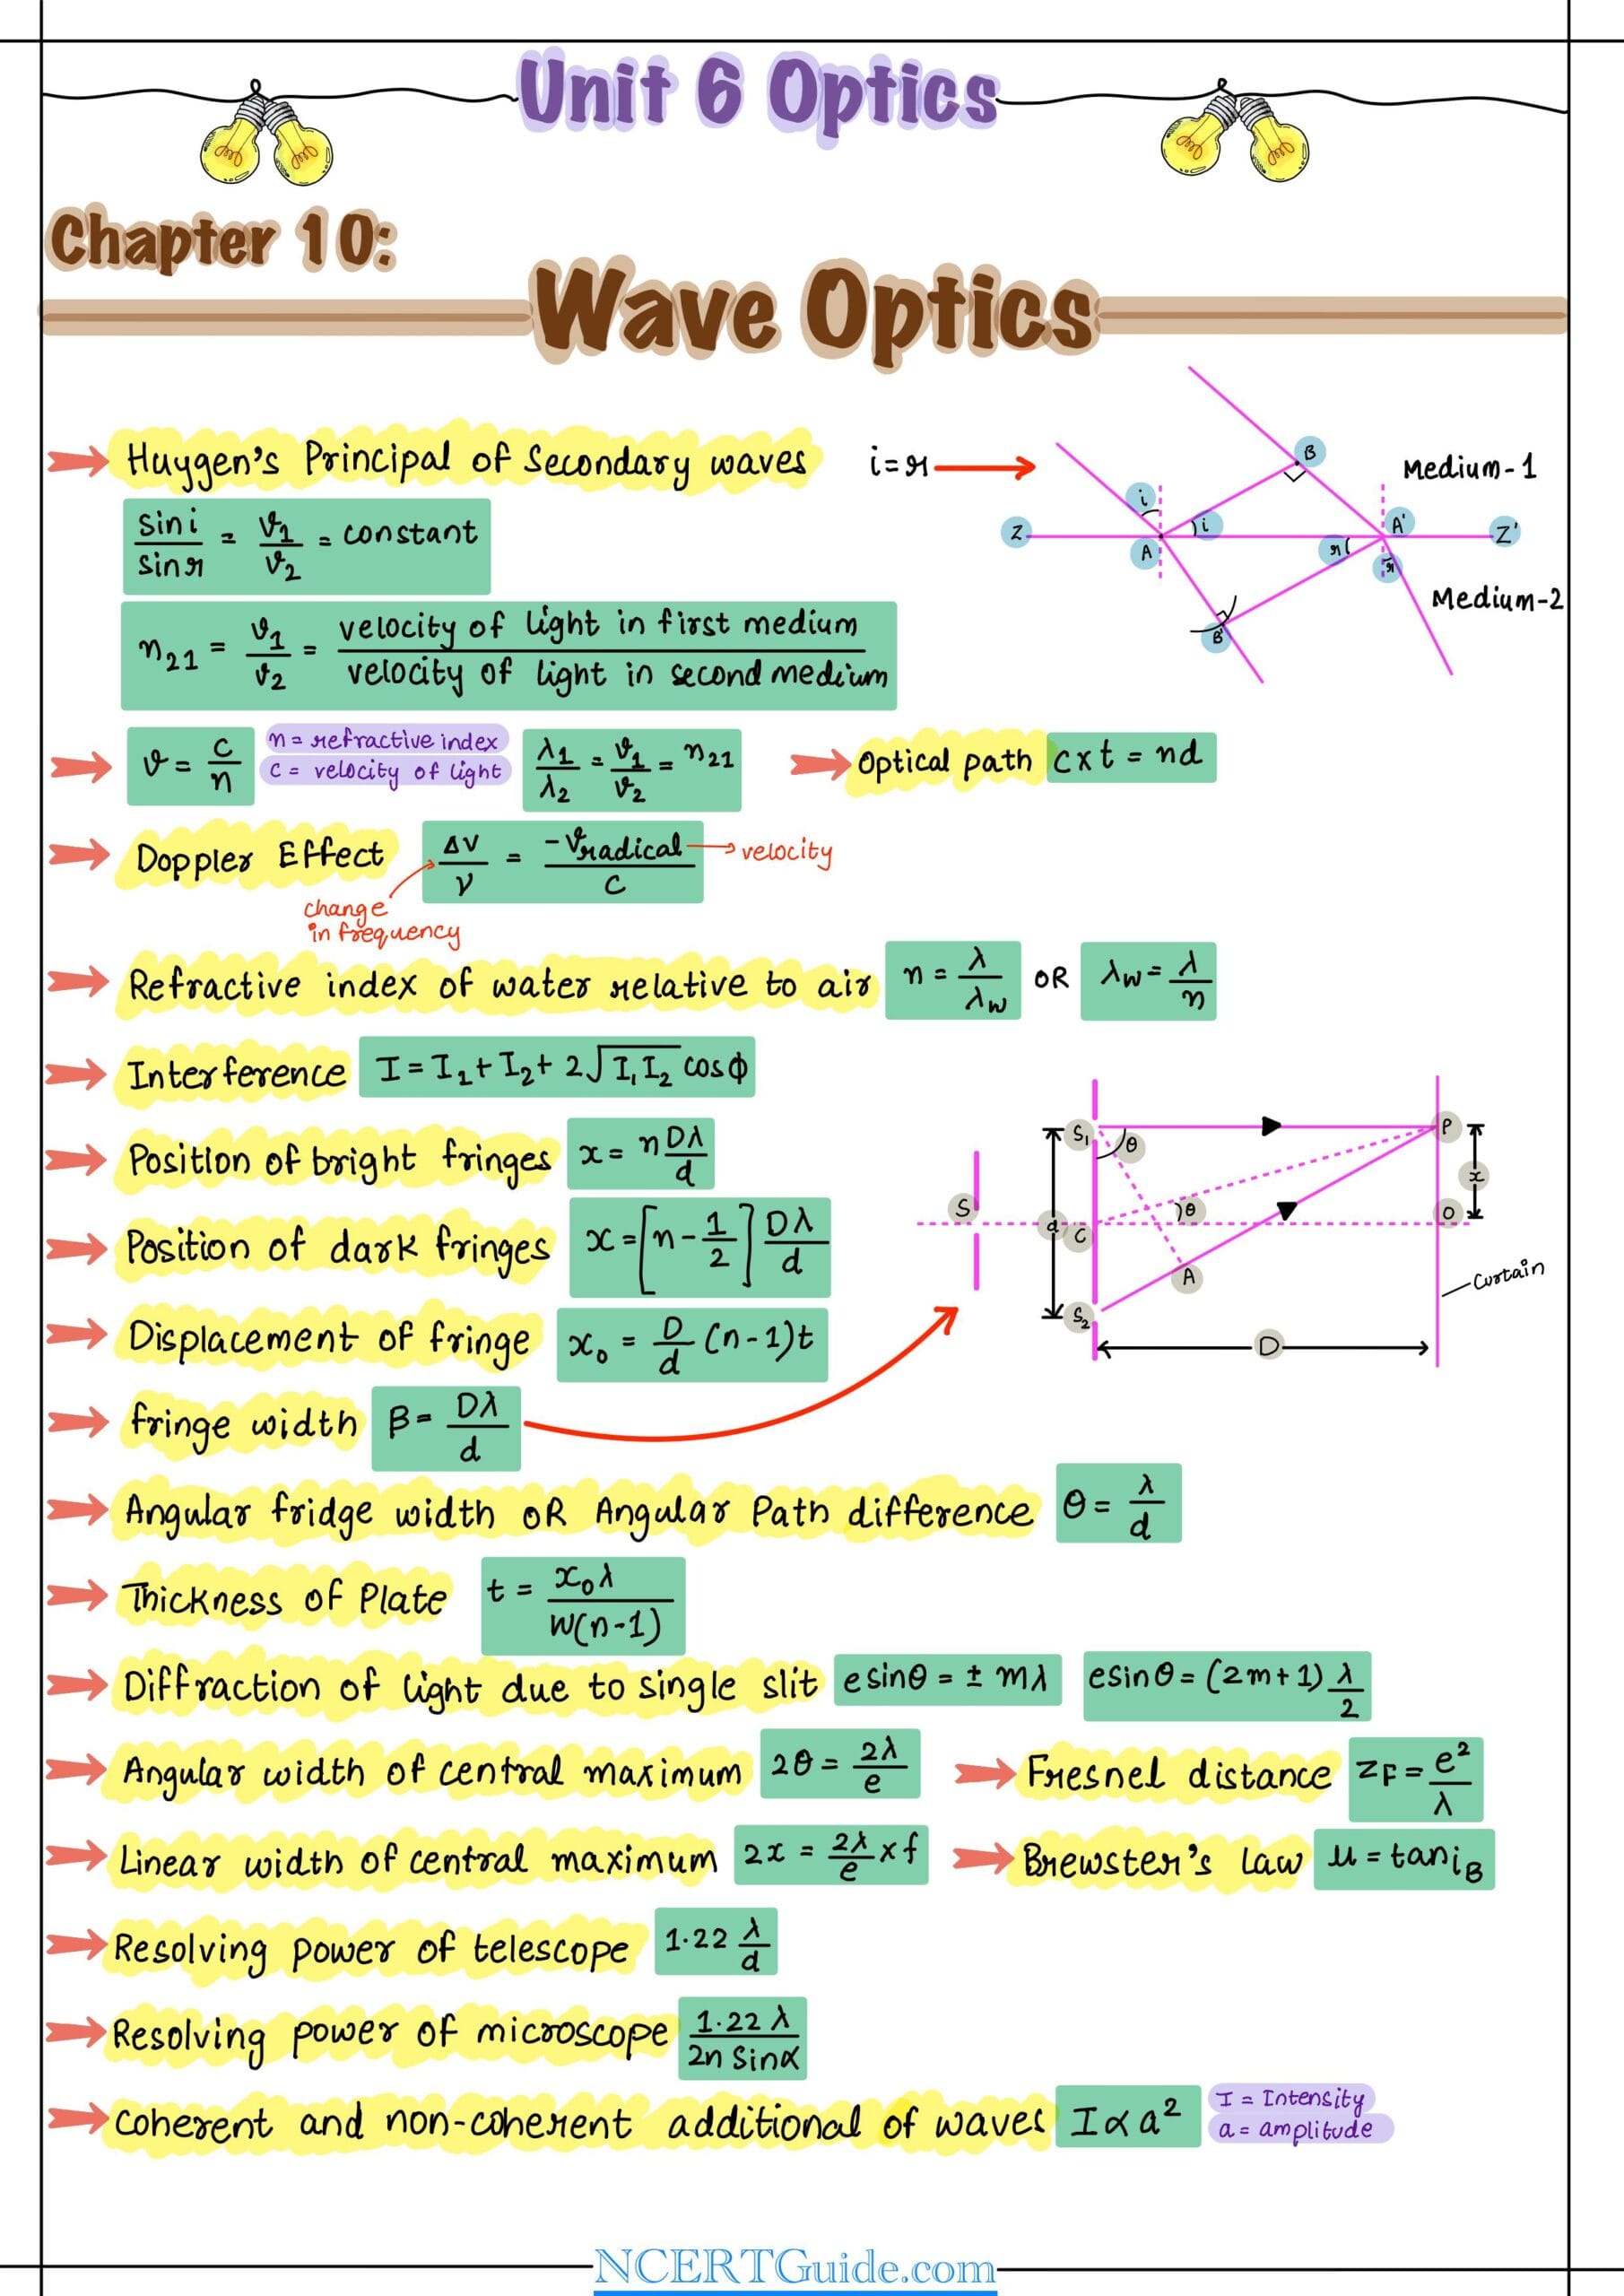 Unit 6 Optics
Chapter 10:
Wave Optics
Huygen's Principal of Secondary waves i=r
sin i / sin r = v1 / v2 = constant
n21 = v1 / v2 = velocity of light in first medium / velocity of light in second medium
Z A i i B r A' r Z' B' Medium-1 Medium-2
v = c / n n = refractive index c = velocity of light λ1 / λ2 = v1 / v2 = n21 Optical path c x t = nd
Doppler Effect Δν / ν = -vradical / c velocity
change
in frequency
Refractive index of water relative to air n = λ / λw OR λw = λ / n
Interference I = I1 + I2 + 2√I1I2 cosϕ
Position of bright fringes x = n Dλ / d
Position of dark fringes x = [n - 1/2] Dλ / d
Displacement of fringe x0 = D/d (n-1)t
fringe width β = Dλ / d
S S1 θ d C θ A S2 D P x O Curtain
Angular fridge width OR Angular Path difference θ = λ / d
Thickness of Plate t = x0λ / W(n-1)
Diffraction of light due to single slit e sinθ = ± mλ e sinθ = (2m+1) λ/2
Angular width of central maximum 2θ = 2λ / e Fresnel distance ZF = e² / λ
Linear width of central maximum 2x = 2λ/e x f Brewster's law μ = tan iB
Resolving power of telescope 1.22 λ/d
Resolving power of microscope 1.22 λ / 2n Sinα
Coherent and non-coherent additional of waves I ∝ a² I = Intensity
a = amplitude
NCERTGuide.com